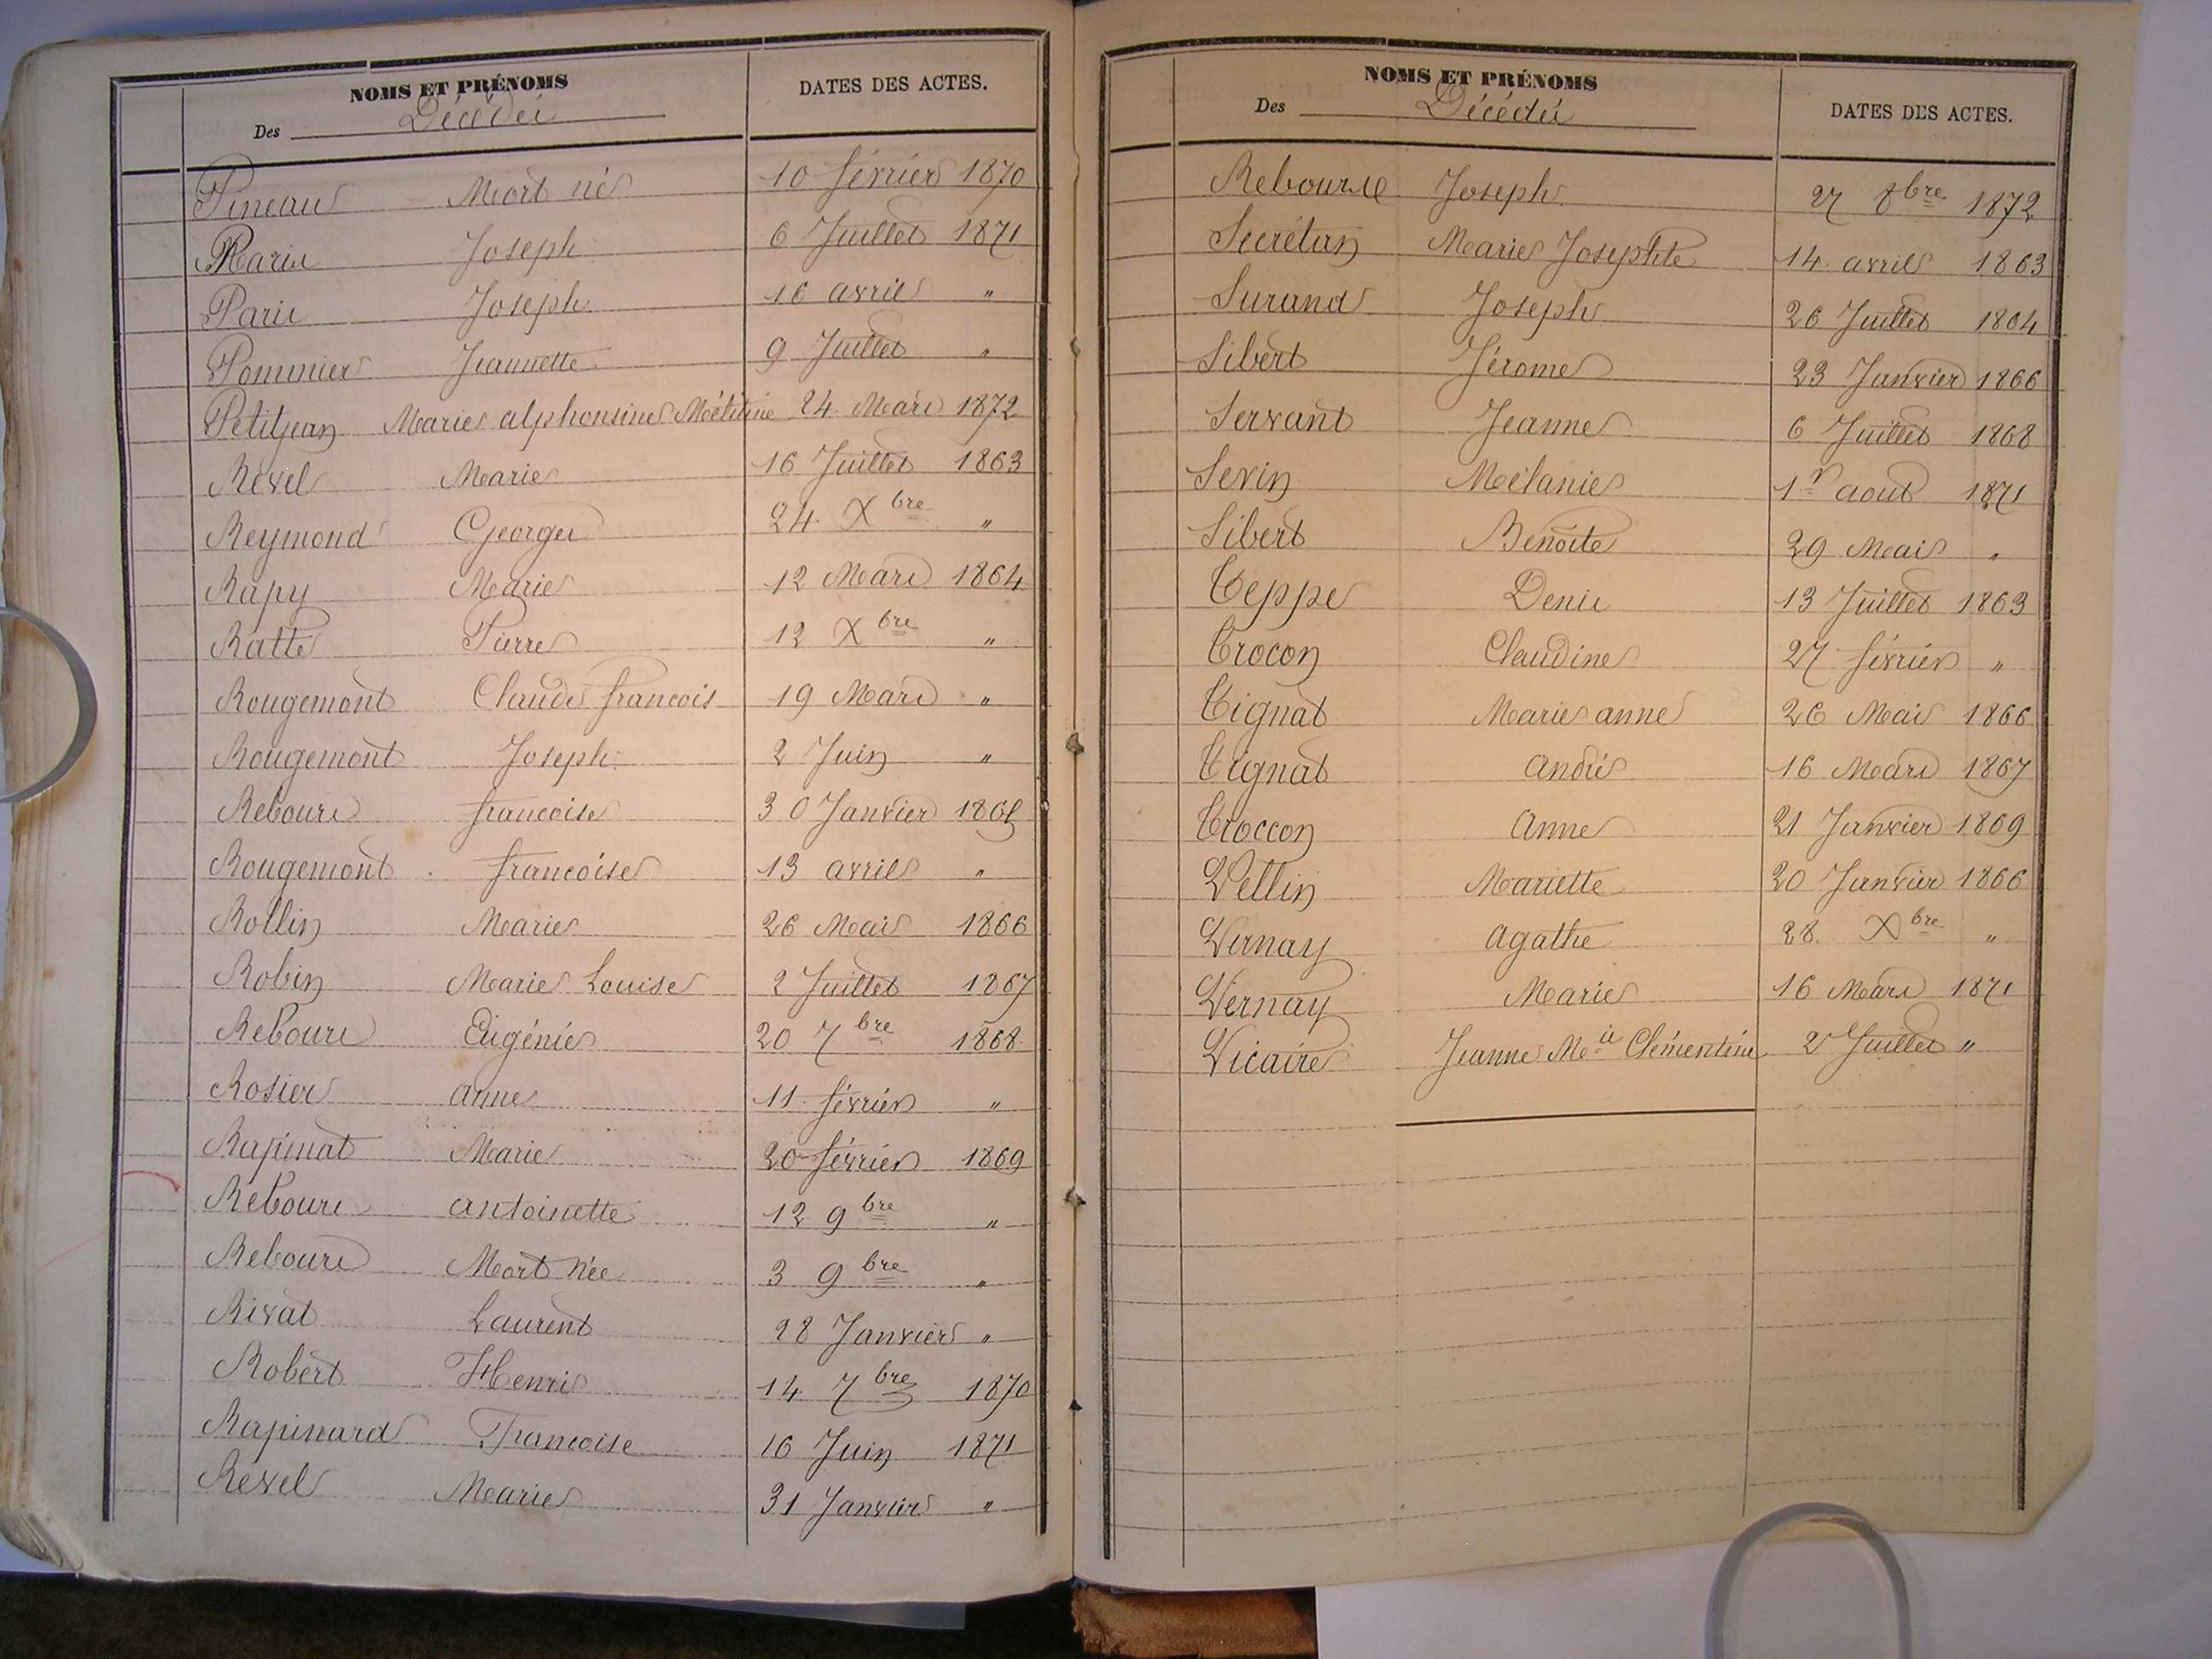 NOMS ET PRÉNOMS
Des Décédés
DATES DES ACTES.
Pineau Mort né 10 février 1870
Paris Joseph 6 Juillet 1871
Paris Joseph 16 avril "
Pommier Jeannette 9 Juillet "
Petitjean Marie alphonsine Mélitine 24 Mars 1872
Revel Marie 16 Juillet 1863
Reymond Georges 24 Xbre "
Rapy Marie 12 Mars 1864
Ratte Pierre 12 Xbre "
Rougemont Claude francois 19 Mars "
Rougemont Joseph 2 Juin "
Rebours francoise 30 Janvier 1865
Rougemont francoise 13 avril "
Rollin Marie 26 Mai 1866
Robin Marie Louise 2 Juillet 1867
Rebours Eugénie 20 7bre 1868
Rosier anne 11 février "
Rapinat Marie 20 février 1869
Rebours antoinette 12 9bre "
Rebours Mort née 3 9bre "
Rivat Laurent 28 Janvier "
Robert Henri 14 7bre 1870
Rapinard Francoise 16 Juin 1871
Revel Marie 31 Janvier "
NOMS ET PRÉNOMS
Des Décédés
DATES DES ACTES.
Rebours Joseph 27 8bre 1872
Secrétan Marie Josephte 14 avril 1863
Surand Joseph 26 Juillet 1864
Sibert Jérome 23 Janvier 1866
Servant Jeanne 6 Juillet 1868
Sevin Mélanie 1r aout 1871
Sibert Benoite 29 Mai "
Teppe Denis 13 Juillet 1863
Trocon Claudine 27 février "
Tignat Marie anne 26 Mai 1866
Tignat andré 16 Mars 1867
Troccon anne 21 Janvier 1869
Vellin Mariette 20 Janvier 1866
Vernay agathe 28 Xbre "
Vernay Marie 16 Mars 1871
Vicaire Jeanne Mie Clémentine 2 Juillet "